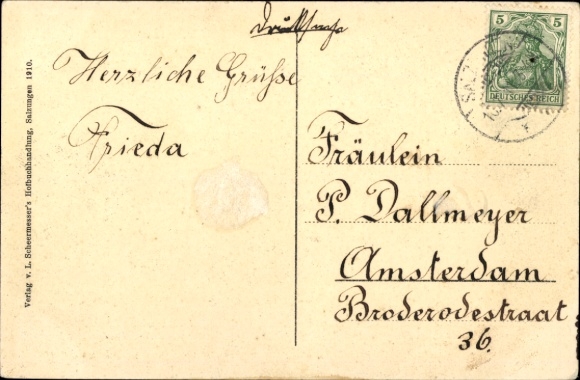 Drucksache
Herzliche Grüsse
Frieda
Fräulein
P. Dallmeyer
Amsterdam
Broderodestraat
36.
5 5
DEUTSCHES REICH
Verlag v. L. Scheermesser's Hofbuchhandlung, Salzungen 1910.